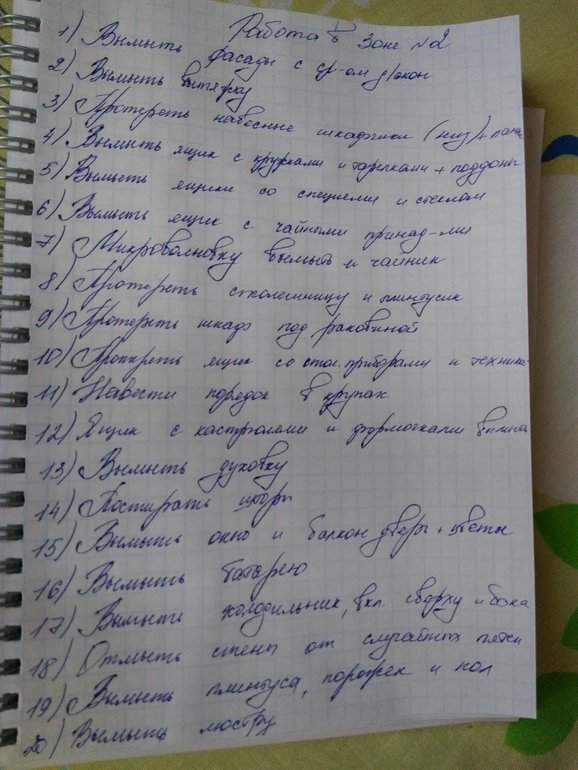 Работа в Зоне №2
1) Вымыть фасады с ср-ом д/окон
2) Вымыть вытяжку
3) Протереть навесные шкафчики (низ) +
4) Вымыть ящик с кружками и тарелками + поддоны
5) Вымыть ящики со специями и стеклом
6) Вымыть ящик с чайными принад-ми
7) Микроволновку вымыть и чайник
8) Протереть столешницу и плинтусик
9) Протереть шкаф под раковиной
10) Протереть ящик со стол. приборами и техника
11) Навести порядок в крупах
12) Ящик с кастрюлями и формочками
13) Вымыть духовку
14) Постирать шторы
15) Вымыть окно и балкон дверь + цветы
16) Вымыть батарею
17) Вымыть холодильник, вкл. сверху и бока
18) Отмыть стены от случайных пятен
19) Вымыть плинтуса, порожек и пол
20) Вымыть люстру